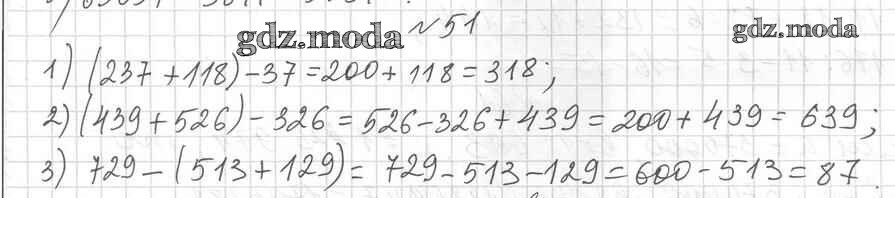 №51
gdz.moda
gdz.moda
1) (237 + 118) - 37 = 200 + 118 = 318;
2) (439 + 526) - 326 = 526 - 326 + 439 = 200 + 439 = 639;
3) 729 - (513 + 129) = 729 - 513 - 129 = 600 - 513 = 87.